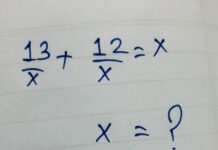 13/x + 12/x = x
x = ?